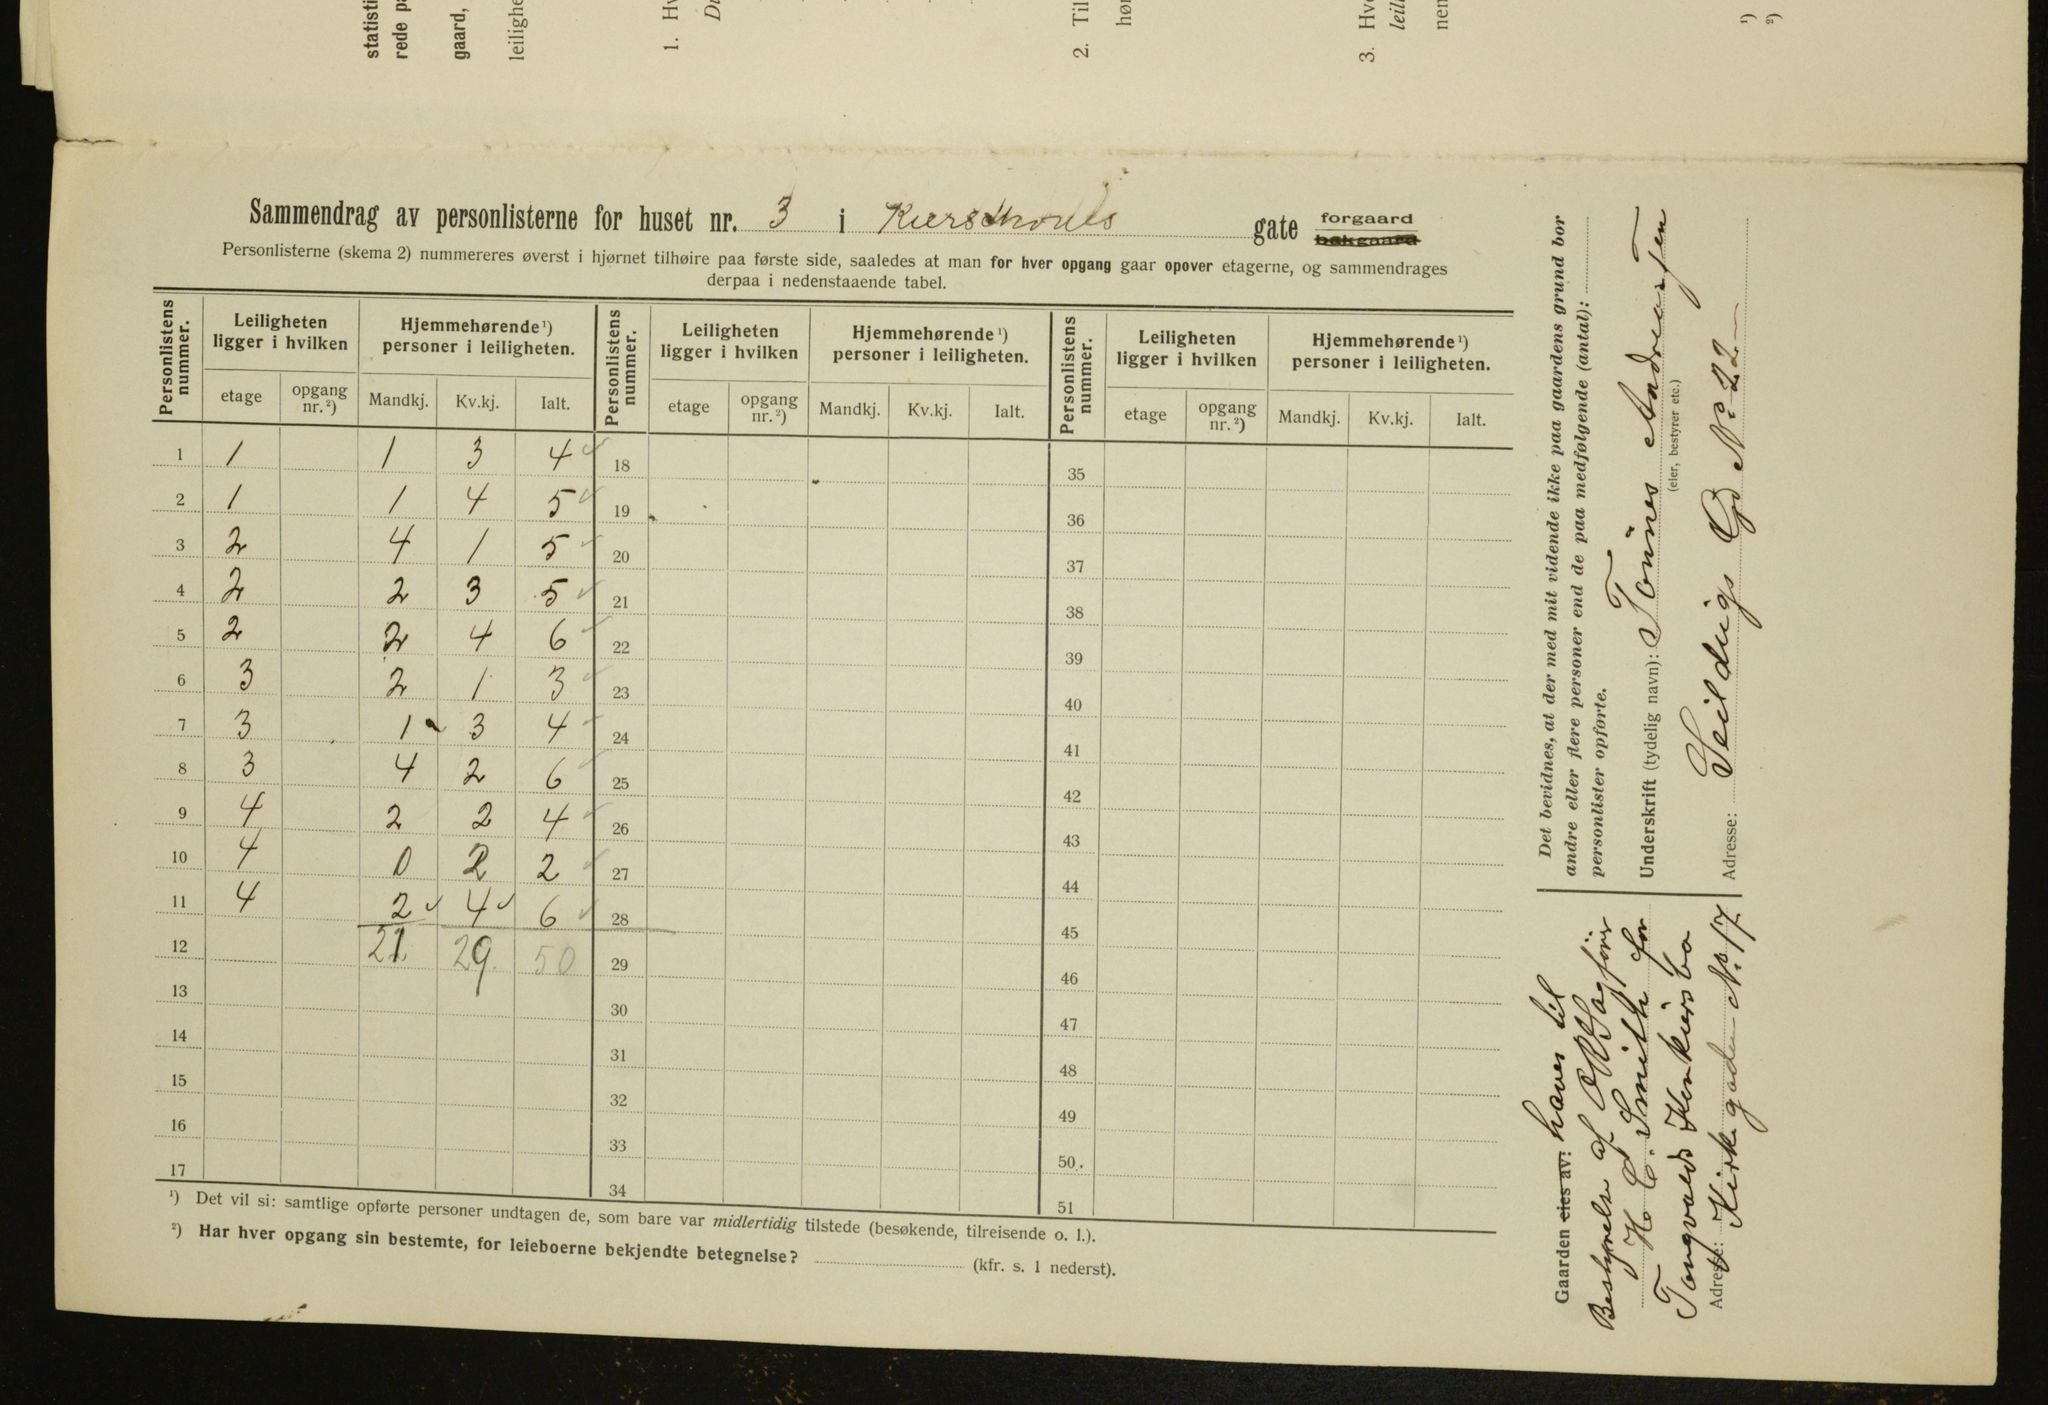 statisti
rede pa
gaard,
leilighe
1. Hv
Di
2. Til
hør
3. Hvo
leil
nen
¹)
²)
Sammendrag av personlisterne for huset nr. 3 i Kierschoues gate forgaard bakgaard
Personlisterne (skema 2) nummereres øverst i hjørnet tilhøire paa første side, saaledes at man for hver opgang gaar opover etagerne, og sammendrages
derpaa i nedenstaaende tabel.
Personlistens nummer. Leiligheten ligger i hvilken Hjemmehørende¹) personer i leiligheten. Personlistens nummer. Leiligheten ligger i hvilken Hjemmehørende¹) personer i leiligheten. Personlistens nummer. Leiligheten ligger i hvilken Hjemmehørende¹) personer i leiligheten.
etage opgang nr.²) Mandkj. Kv.kj. Ialt. etage opgang nr.²) Mandkj. Kv.kj. Ialt. etage opgang nr.²) Mandkj. Kv.kj. Ialt.
1 1 1 3 4 18 35
2 1 1 4 5 19 36
3 2 4 1 5 20 37
4 2 2 3 5 21 38
5 2 2 4 6 22 39
6 3 2 1 3 23 40
7 3 1 3 4 24 41
8 3 4 2 6 25 42
9 4 2 2 4 26 43
10 4 0 2 2 27 44
11 4 2 4 6 28 45
12 21 29 50 29 46
13 30 47
14 31 48
15 32 49
16 33 50
17 34 51
¹) Det vil si: samtlige opførte personer undtagen de, som bare var midlertidig tilstede (besøkende, tilreisende o. l.).
²) Har hver opgang sin bestemte, for leieboerne bekjendte betegnelse? (kfr. s. 1 nederst).
Det bevidnes, at der med mit vidende ikke paa gaardens grund bor
andre eller flere personer end de paa medfølgende (antal):
personlister opførte.
Underskrift (tydelig navn): Tönnes Andreassen
(eier, bestyrer etc.)
Adresse: Seilduigs Gd No 22
Gaarden eies av: hører til
Bestyrelse af Sagförer
H. C. Smith for
Adresse: Kirkegaden No. 17